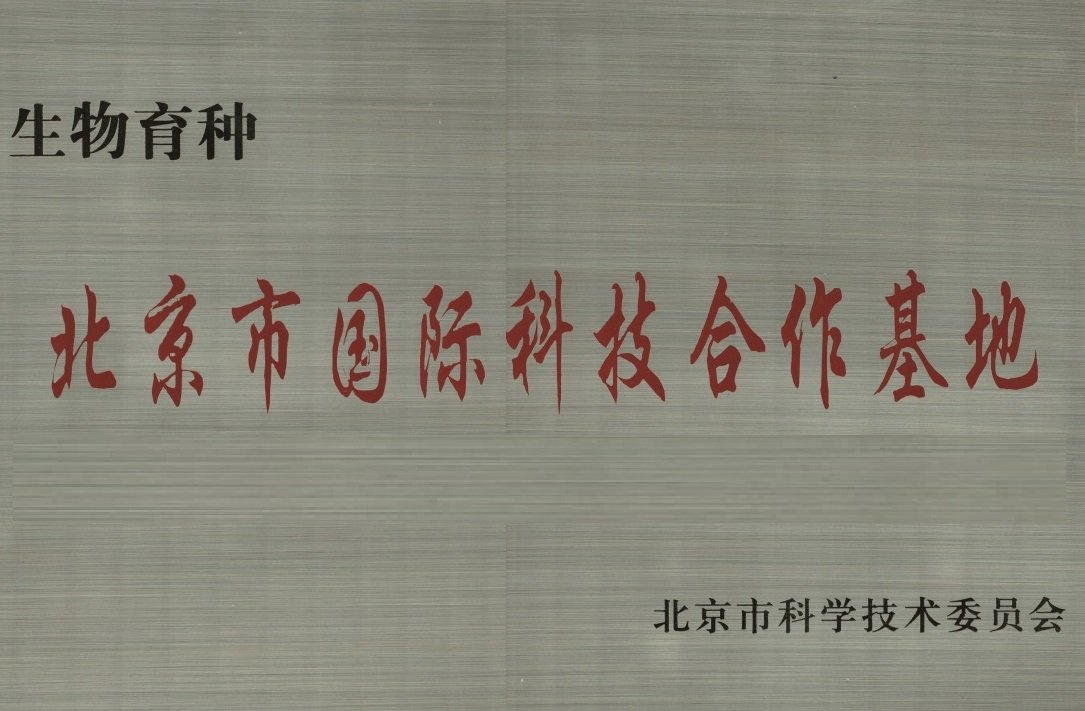 生物育种
北京市国际科技合作基地
北京市科学技术委员会